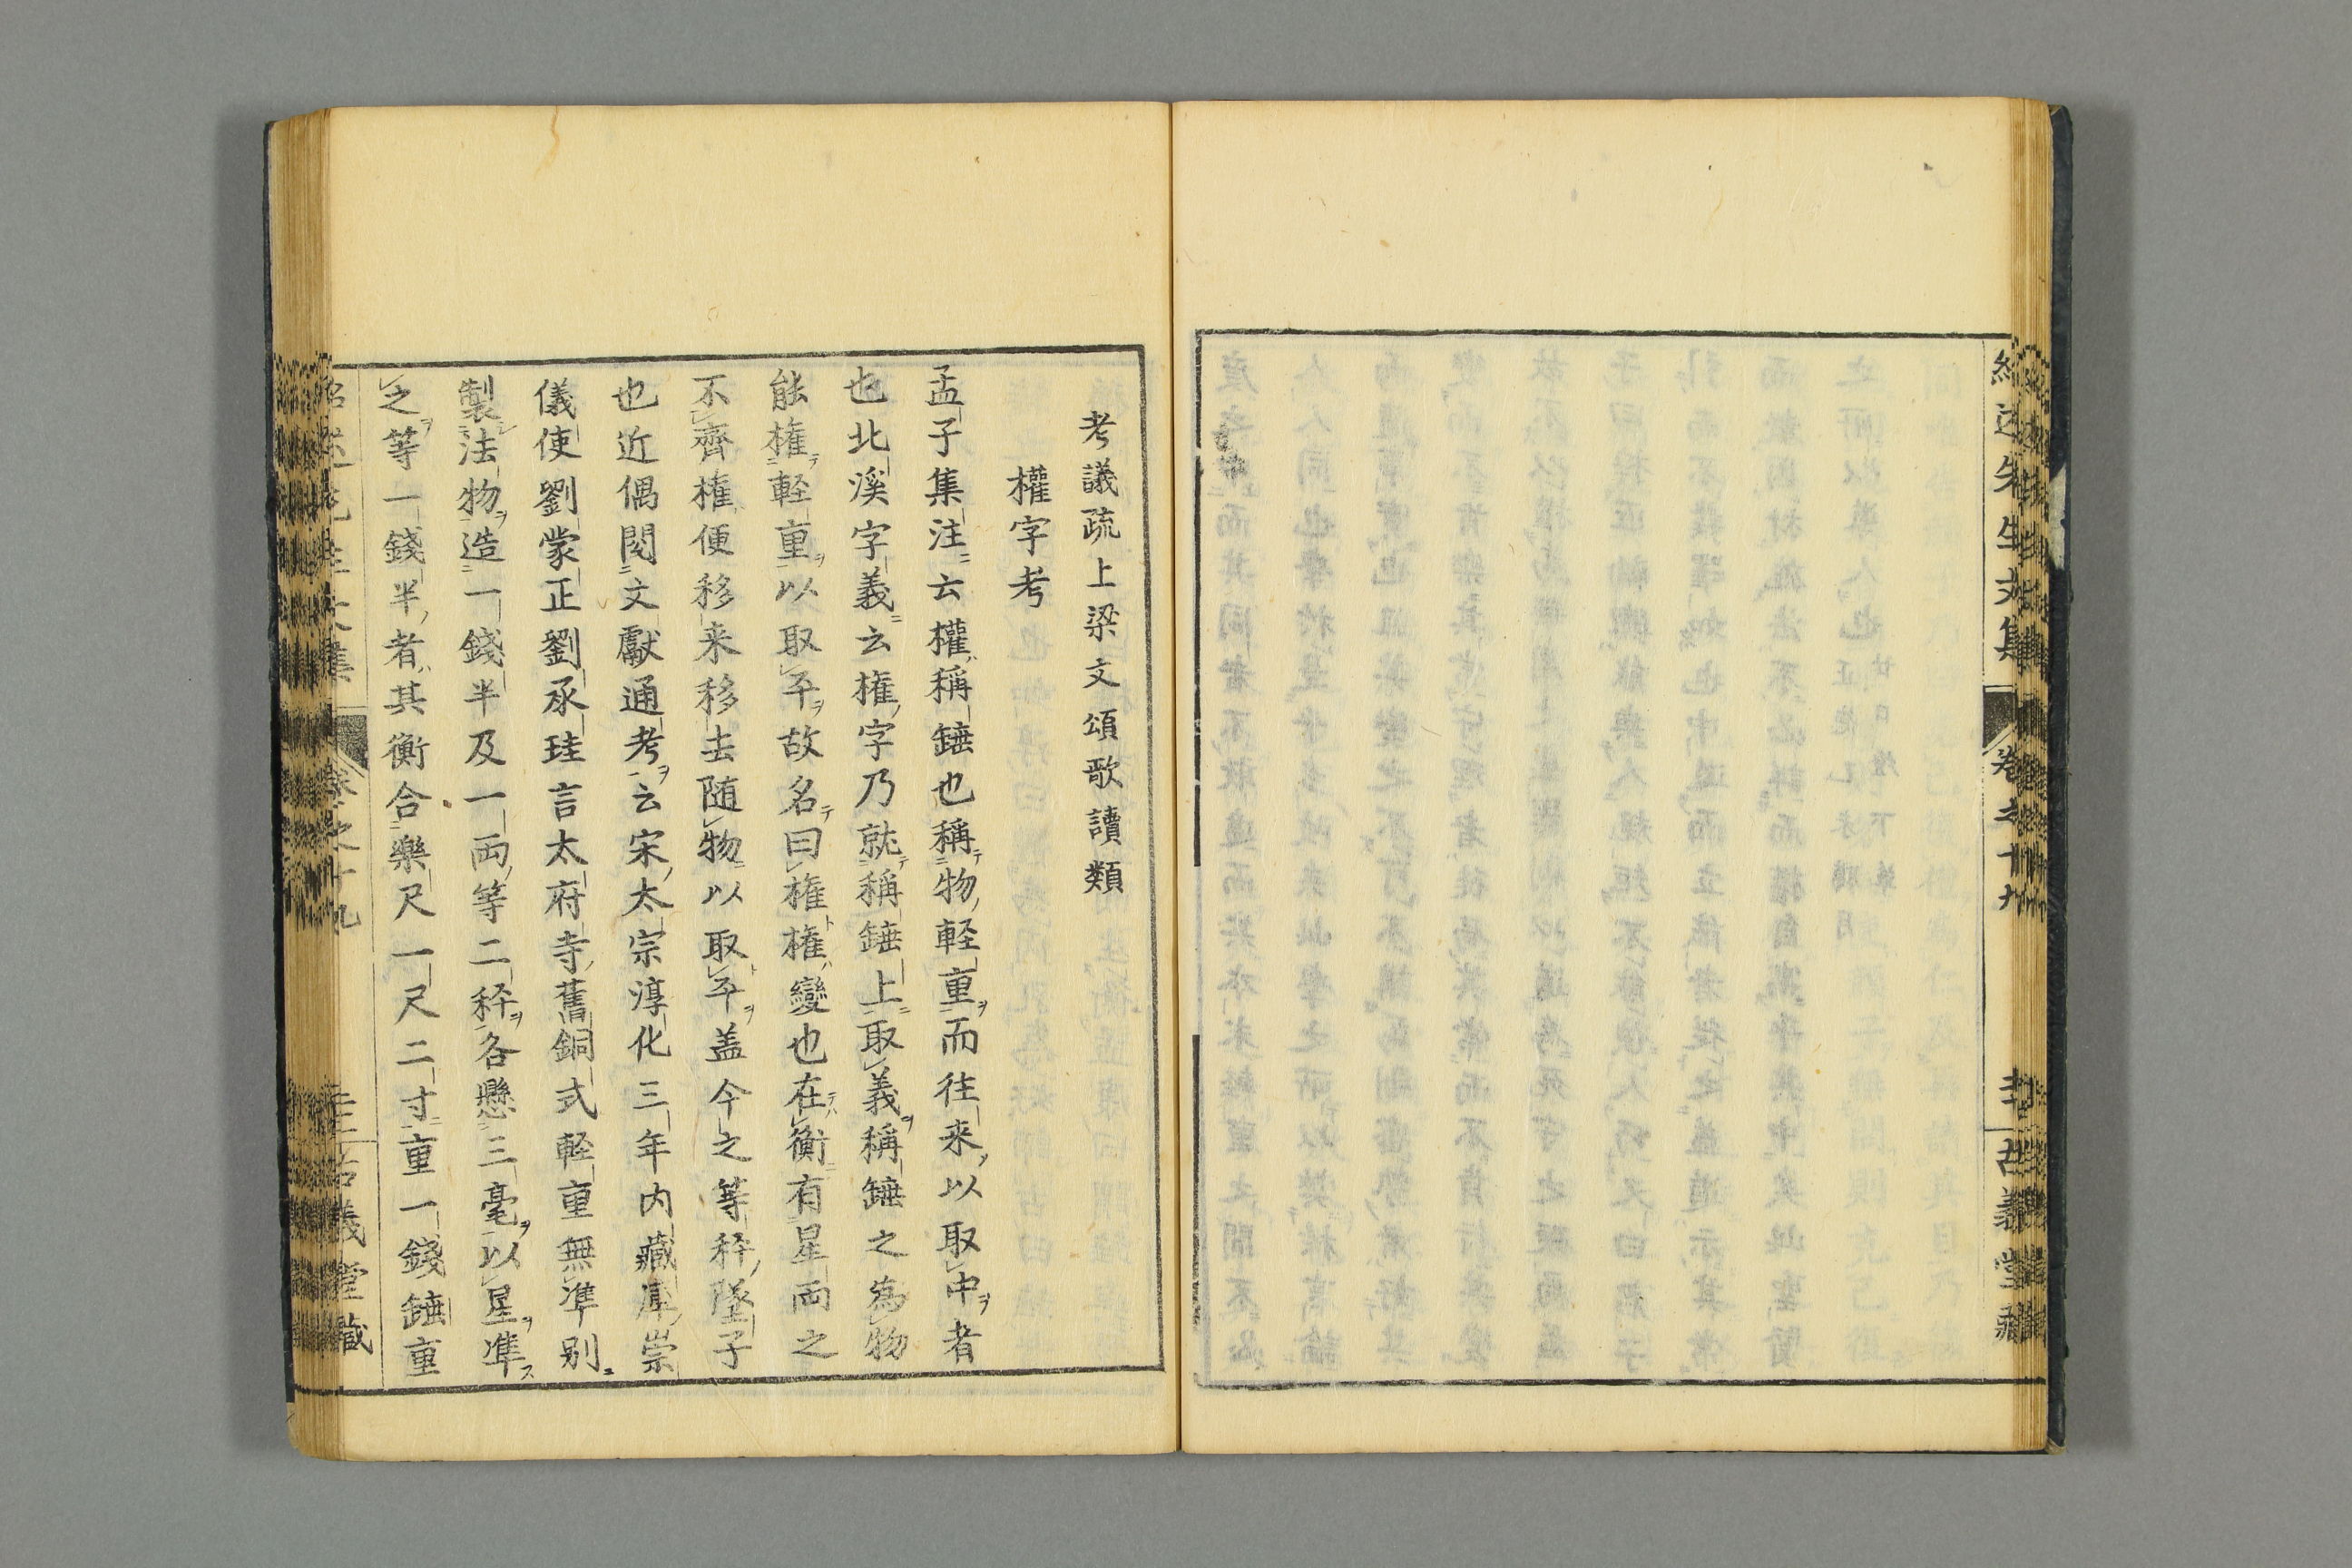 紹述先生文集 卷之十九 古義堂藏
考議疏上梁文頌歌讀類
權字考
孟子集注云權稱錘也稱物軽重而往来以取中者
也北溪字義云権字乃就稱錘上取義稱錘之為物
能権軽重以取平故名曰権権變也在衡有星両之
不齊権便移来移去随物以取平盖今之等秤墜子
也近偶閱文獻通考云宋太宗淳化三年内藏庫崇
儀使劉蒙正劉承珪言太府寺舊銅式軽重無準别
製法物造一錢半及一両等二秤各懸三毫以星準
之等一錢半者其衡合樂尺一尺二寸重一錢錘重
紹述先生文集 卷之十九 古義堂藏